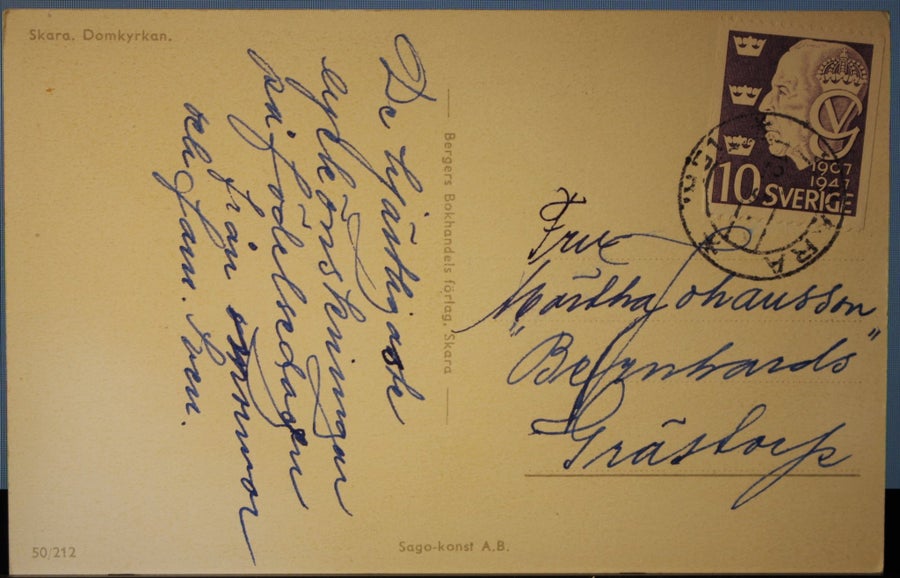 Skara. Domkyrkan.
De hjärtligaste
lyckönskningar
på födelsedagen
från mormor
och fam. Sven.
Bergers Bokhandels förlag, Skara
10 SVERIGE
1907
1947
SKARA
Fru
Märtha Johansson
"Bernhards"
Grästorp
50/212
Sago-konst A.B.